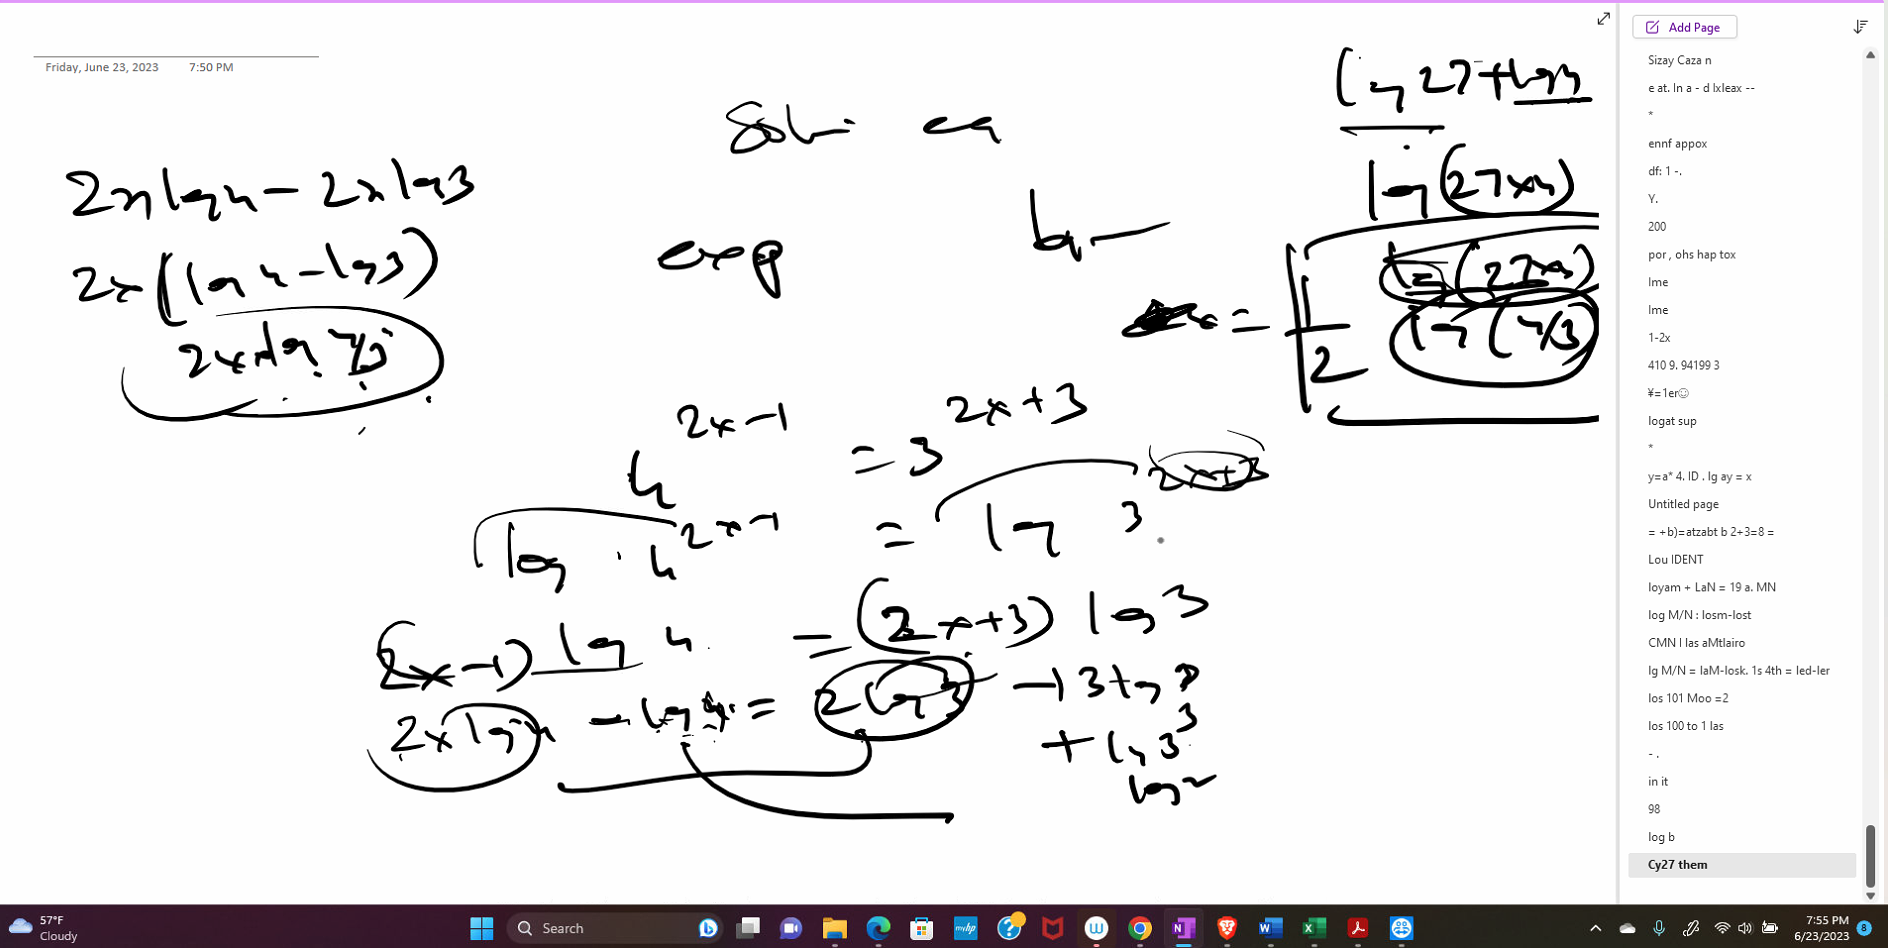 Friday, June 23, 2023 7:50 PM
2x log 4 - 2x log 3
2x (log 4 - log 3)
2x log 4/3
exp
log 27 + log 4
log (27x4)
= 1/2 log (27x4)
log (4/3)
4^2x-1 = 3^2x+3
log 4^2x-1 = log 3^2x+3
(2x-1) log 4 = (2x+3) log 3
2x log 4 - log 4 = 2 log 3 + 3 log 3
+ log 3^3
log 2
Add Page
Sizay Caza n
e at. In a - d lxleax --
*
ennf appox
df: 1 -.
Y.
200
por , ohs hap tox
Ime
Ime
1-2x
410 9. 94199 3
¥=1er☺
logat sup
*
y=a* 4. ID . lg ay = x
Untitled page
= +b)=atzabt b 2+3=8 =
Lou IDENT
loyam + LaN = 19 a. MN
log M/N : losm-lost
CMN I las aMtlairo
lg M/N = laM-losk. 1s 4th = led-ler
los 101 Moo =2
los 100 to 1 las
- .
in it
98
log b
Cy27 them
57°F
Cloudy
Search
myhp
7:55 PM
6/23/2023
8